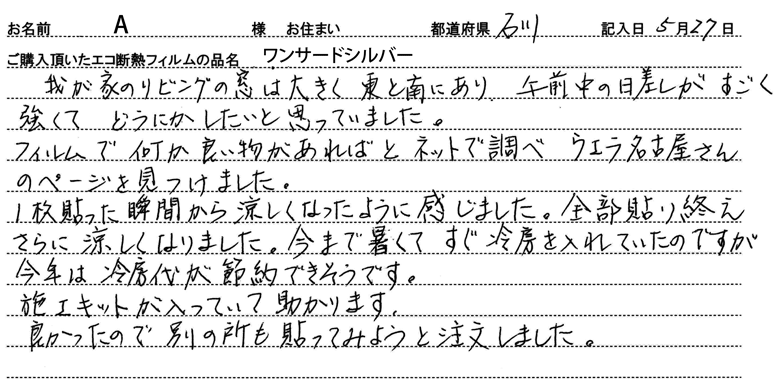 お名前 A 様 お住まい 都道府県 石川 記入日 5月27日
ご購入頂いたエコ断熱フィルムの品名 ワンサードシルバー
我が家のリビングの窓は大きく 東と南にあり、午前中の日差しが すごく
強くて どうにかしたいと思っていました。
フィルムで 何か良い物があればと ネットで調べ ウエラ名古屋さん
のページを見つけました。
1枚貼った瞬間から涼しくなったように感じました。全部貼り終え
さらに涼しくなりました。今まで暑くて すぐ冷房を入れていたのですが
今年は 冷房代が節約できそうです。
施工キットが入っていて助かります。
良かったので 別の所も貼ってみようと注文しました。